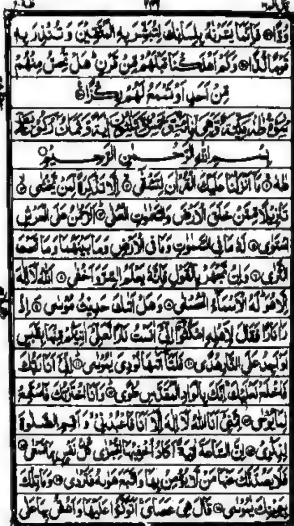 وُدًّا فَاِنَّمَا يَسَّرْنٰهُ بِلِسَانِكَ لِتُبَشِّرَ بِهِ الْمُتَّقِيْنَ وَتُنْذِرَ بِهٖ
قَوْمًا لُّدًّا وَكَمْ اَهْلَكْنَا قَبْلَهُمْ مِّنْ قَرْنٍ هَلْ تُحِسُّ مِنْهُمْ
مِّنْ اَحَدٍ اَوْ تَسْمَعُ لَهُمْ رِكْزًا
بِسْمِ اللّٰهِ الرَّحْمٰنِ الرَّحِيْمِ
طٰهٰ مَاۤ اَنْزَلْنَا عَلَيْكَ الْقُرْاٰنَ لِتَشْقٰۤى اِلَّا تَذْكِرَةً لِّمَنْ يَّخْشٰى
تَنْزِيْلًا مِّمَّنْ خَلَقَ الْاَرْضَ وَالسَّمٰوٰتِ الْعُلٰى اَلرَّحْمٰنُ عَلَى الْعَرْشِ
اسْتَوٰى لَهٗ مَا فِى السَّمٰوٰتِ وَمَا فِى الْاَرْضِ وَمَا بَيْنَهُمَا وَمَا تَحْتَ
الثَّرٰى وَاِنْ تَجْهَرْ بِالْقَوْلِ فَاِنَّهٗ يَعْلَمُ السِّرَّ وَاَخْفٰى اَللّٰهُ لَاۤ اِلٰهَ
اِلَّا هُوَ لَهُ الْاَسْمَآءُ الْحُسْنٰى وَهَلْ اَتٰىكَ حَدِيْثُ مُوْسٰى اِذْ
رَاٰ نَارًا فَقَالَ لِاَهْلِهِ امْكُثُوْۤا اِنِّىْۤ اٰنَسْتُ نَارًا لَّعَلِّىْۤ اٰتِيْكُمْ مِّنْهَا بِقَبَسٍ
اَوْ اَجِدُ عَلَى النَّارِ هُدًى فَلَمَّاۤ اَتٰىهَا نُوْدِىَ يٰمُوْسٰى اِنِّىْۤ اَنَا رَبُّكَ
فَاخْلَعْ نَعْلَيْكَ اِنَّكَ بِالْوَادِ الْمُقَدَّسِ طُوًى وَاَنَا اخْتَرْتُكَ فَاسْتَمِعْ
لِمَا يُوْحٰى اِنَّنِىْۤ اَنَا اللّٰهُ لَاۤ اِلٰهَ اِلَّاۤ اَنَا فَاعْبُدْنِىْ وَاَقِمِ الصَّلٰوةَ
لِذِكْرِىْ اِنَّ السَّاعَةَ اٰتِيَةٌ اَكَادُ اُخْفِيْهَا لِتُجْزٰى كُلُّ نَفْسٍۭ بِمَا تَسْعٰى
فَلَا يَصُدَّنَّكَ عَنْهَا مَنْ لَّا يُؤْمِنُ بِهَا وَاتَّبَعَ هَوٰىهُ فَتَرْدٰى وَمَا تِلْكَ
بِيَمِيْنِكَ يٰمُوْسٰى قَالَ هِىَ عَصَاىَ اَتَوَكَّؤُا عَلَيْهَا وَاَهُشُّ بِهَا عَلٰى